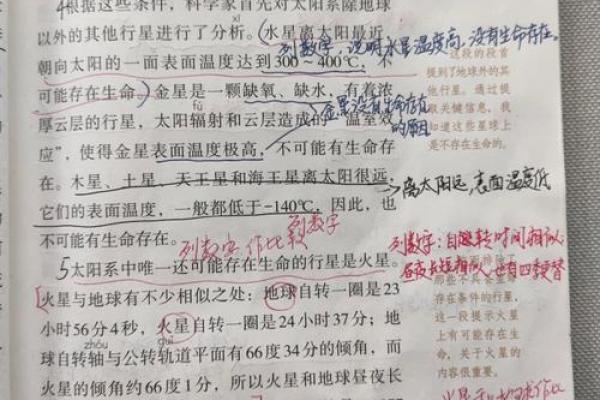 4根据这些条件，科学家首先对太阳系除地球
以外的其他行星进行了分析。（水星离太阳最近
xī
朝向太阳的一面表面温度达到300～400℃，不
可能存在生命。）金星是一颗缺氧、缺水，有着浓
fú
厚云层的行星，太阳辐射和云层造成的“温室效
应”，使得金星表面温度极高，不可能有生命存
在。木星、土星、天王星和海王星离太阳很远，
它们的表面温度，一般都低于-140℃，因此，也
不可能有生命存在。
5太阳系中唯一还可能存在生命的行星是火星。
火星与地球有不少相似之处：地球自转一圈是23
小时56分4秒，火星自转一圈是24小时37分；地
zhóu
guǐ
球自转轴与公转轨道平面有66度34分的倾角，而
火星的倾角约66度1分，所以火星和地球昼夜长
列数字，说明水星温度高，没有生命存在。
金星没有生命存在
的原因
离太阳远，表面温度低
列数字
列数字 作比较
列数字：自转时间相似
昼夜长短相似 也有四季更替
这段的段首
提到了地球外的其
他行星。通过提
取关键信息，我
知道这些星球上
是不存在生命的。
存在条件的行星，
这一段提示火星
上有可能存在生
命，关于火星的
内容很重要。